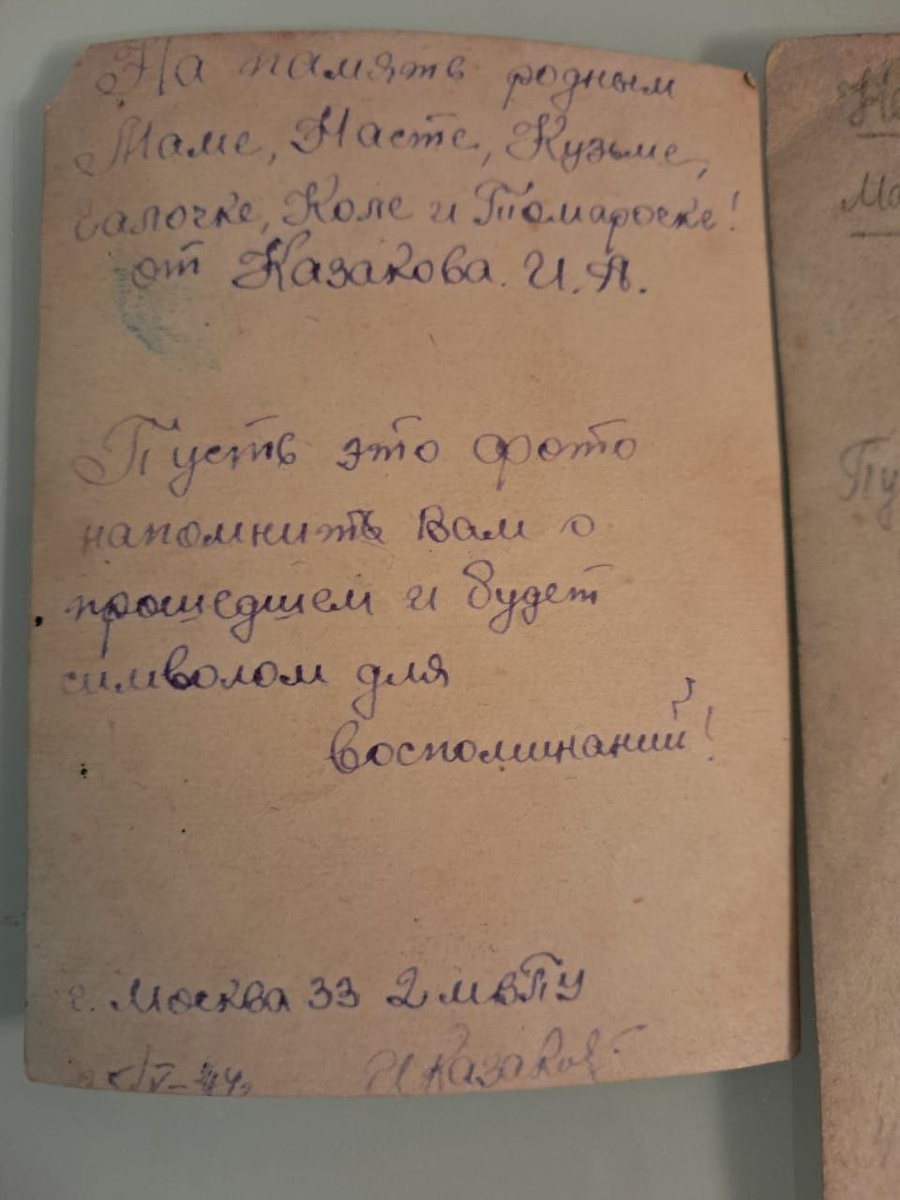 На память родным
Маме, Насте, Кузьме,
Галочке, Коле и Томароске!
от Казакова. И. А.
Пусть это фото
напомнить Вам о
прошедшем и будет
символом для
воспоминаний!
г. Москва 33 2 мвПУ
/V-44г И Казаков
Ма
Пу